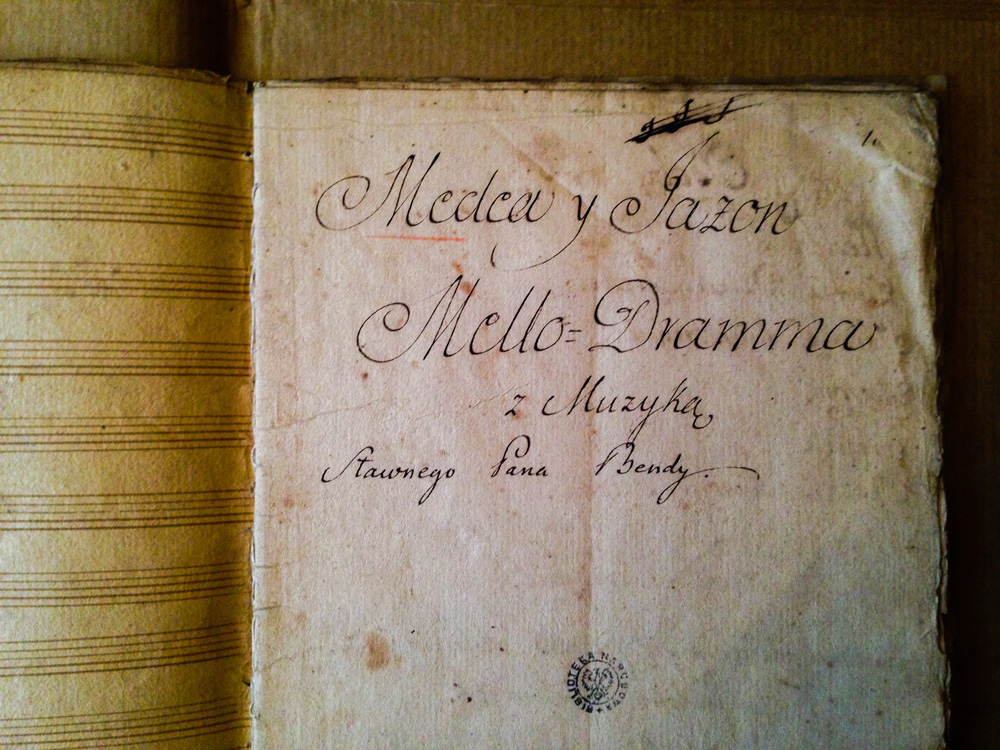 Medea y Jazon
Mello=Dramma
z Muzyką
Sławnego Pana Bendy.
BIBLIOTEKA NARODOWA